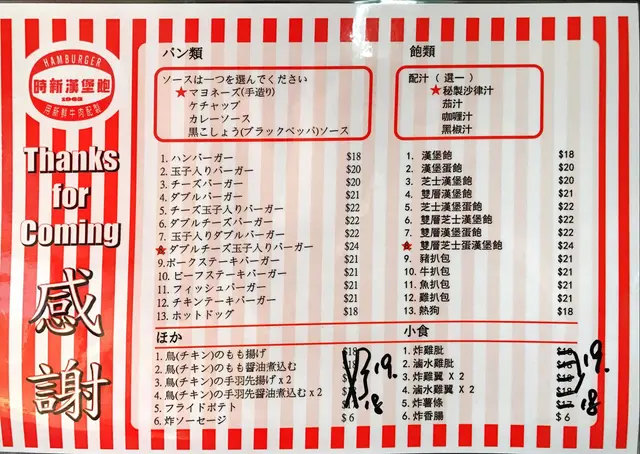 HAMBURGER
時新漢堡飽
用新鮮牛肉配製
Thanks
for
Coming
感
謝
パン類
ソースは一つを選んでください
★マヨネーズ(手造り)
ケチャップ
カレーソース
黒こしょう(ブラックペッパ)ソース
1. ハンバーガー $18
2. 玉子入りバーガー $20
3. チーズバーガー $20
4. ダブルバーガー $21
5. チーズ玉子入りバーガー $22
6. ダブルチーズバーガー $22
7. 玉子入りダブルバーガー $22
★ ダブルチーズ玉子入りバーガー $24
9. ポークステーキバーガー $21
10. ビーフステーキバーガー $21
11. フィッシュバーガー $21
12. チキンテーキバーガー $21
13. ホットドッグ $18
ほか
1. 鳥(チキン)のもも揚げ $18
2. 鳥(チキン)のもも醤油煮込む
3. 鳥(チキン)の手羽先揚げ x 2
4. 鳥(チキン)の手羽先醤油煮込む x 2
5. フライドポテト
6. 炸ソーセージ $ 6
19.
18
飽類
配汁 ( 選一 )
★秘製沙律汁
茄汁
咖喱汁
黑椒汁
1. 漢堡飽 $18
2. 漢堡蛋飽 $20
3. 芝士漢堡飽 $20
4. 雙層漢堡飽 $21
5. 芝士漢堡蛋飽 $22
6. 雙層芝士漢堡飽 $22
7. 雙層漢堡蛋飽 $22
★ 雙層芝士蛋漢堡飽 $24
9. 豬扒包 $21
10. 牛扒包 $21
11. 魚扒包 $21
12. 雞扒包 $21
13. 熱狗 $18
小食
1. 炸雞肶
2. 滷水雞肶
3. 炸雞翼 X 2
4. 滷水雞翼 X 2
5. 炸薯條
6. 炸香腸 $ 6
19.
18